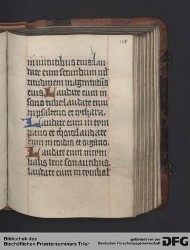 in uirtutibus eius lau
date eum secundum mul
titudinem magnitudinis
eius Laudate eum in
sono tube laudate eum
in psalterio et cythara
Laudate eum in tym
pano et choro laudate
eum in cordis et organo
Laudate eum in cym
balis bene sonantibus
laudate eum in cymbal
Bibliothek des
Bischöflichen Priesterseminars Trier
gefördert von der
DFG Deutschen Forschungsgemeinschaft